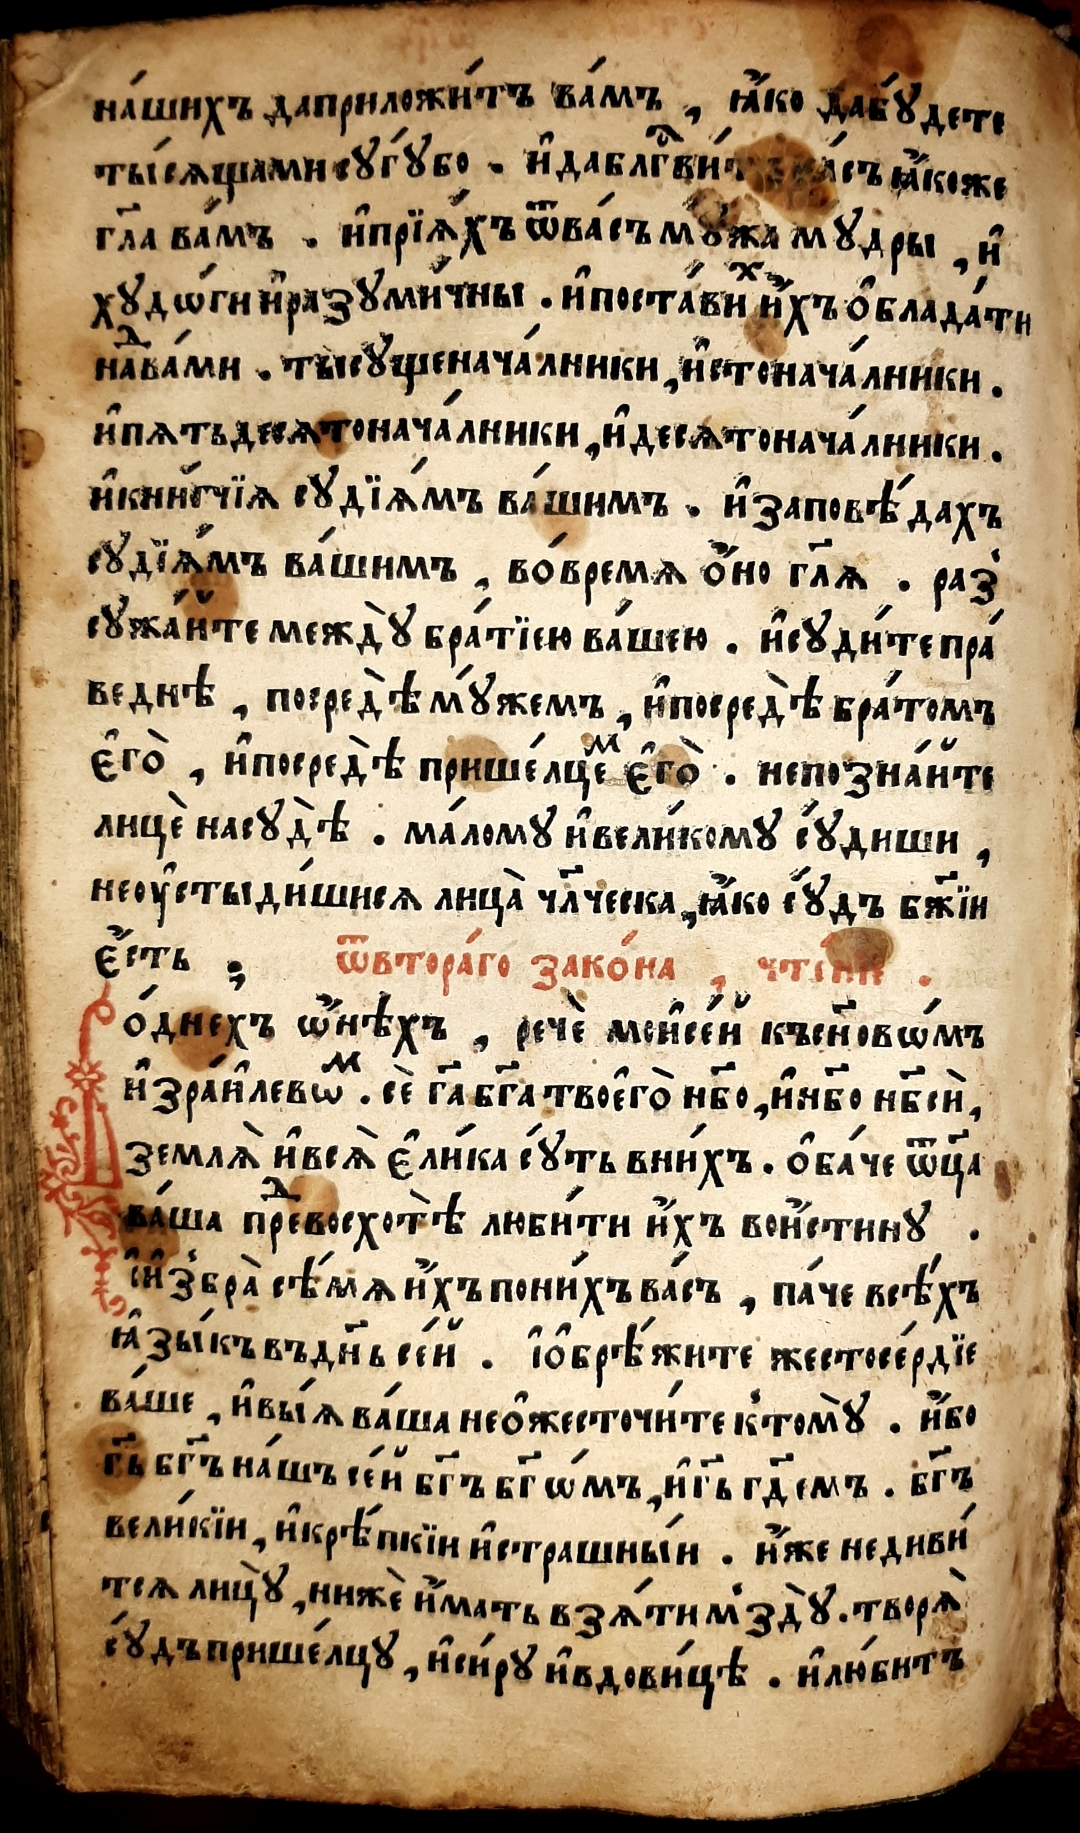 на́шихъ даприложи́тъ ва́мъ , ꙗ҆́ко дабꙋ́дете
ты́сѧщами сꙋгꙋ́бо . и҆даблгⷭ҇ви́тъ ва́съ ꙗ҆́коже
гл҃а ва́мъ . и҆прїѧ́хъ ѿва́съ мꙋ́жа мꙋ́дры , и҆
хꙋдѡ́ги и҆разꙋми́чны . и҆поста́вихⷯ и҆́хъ ѻ҆блада́ти
надⷣва́ми . ты́сꙋщенача́лники , и҆стонача́лники .
и҆пѧтьдесѧтонача́лники , и҆десѧтонача́лники .
и҆кни́гчїѧ сꙋдїѧ́мъ ва́шимъ . и҆заповѣ́дахъ
сꙋдїѧ́мъ ва́шимъ , во́времѧ ѻ҆́но гл҃ѧ . раз̾
сꙋжа́йте междꙋ̀ бра́тїею ва́шею . и҆сꙋди́те пра́
веднѣ , посредѣ̀ мꙋ́жемъ , и҆посредѣ̀ бра́томъ
є҆гѡ̀ , и҆посредѣ̀ прише́лцеⷨ є҆гѡ̀ . непозна́йте
лицѐ насꙋдѣ̀ . ма́ломꙋ и҆вели́комꙋ сꙋ́диши ,
неоу҆стыди́шисѧ лица̀ чл҃ческа , ꙗ҆́ко сꙋ́дъ бж҃їи
є҆́сть ; ѿвтора́го зако́на , чте́нїе .
ѻ́днехъ ѡ҆́нѣхъ , речѐ мои҆се́й късн҃овѡ́мъ
и҆зра́илевѡⷨ . сѐ гд҃а бг҃а твоегѡ̀ нб҃о , и҆нб҃о нб҃сѝ ,
землѧ̀ и҆всѧ̀ є҆ли́ка сꙋ́ть вни́хъ . ѻ҆ба́че ѿц҃а
ва́ша преⷣвосхотѣ̀ люби́ти и҆́хъ вои́стинꙋ .
и҆ и҆з̾бра̀ сѣ́мѧ и҆́хъ пони́хъ ва́съ , па́че всѣ́хъ
ꙗ҆зы́къ въдн҃ь се́й . і҆ѻ҆брѣ́жите жестосе́рдїе
ва́ше , и҆вы́ѧ ва́ша неѻ҆жесточи́те к̾томꙋ̀ . и҆́бо
гд҃ь бг҃ъ на́шъ се́й бг҃ъ бг҃ѡ́мъ , и҆гд҃ь гд҃емъ . бг҃ъ
вели́кїи , и҆крѣ́пкїи и҆страшны́и . и҆́же недиви́
тсѧ лицꙋ̀ , нижѐ и҆́мать взѧ́ти м̾здꙋ̀ . творѧ̀
сꙋ́дъ прише́лцꙋ , и҆си́рꙋ и҆вдови́цѣ . и҆лю́битъ